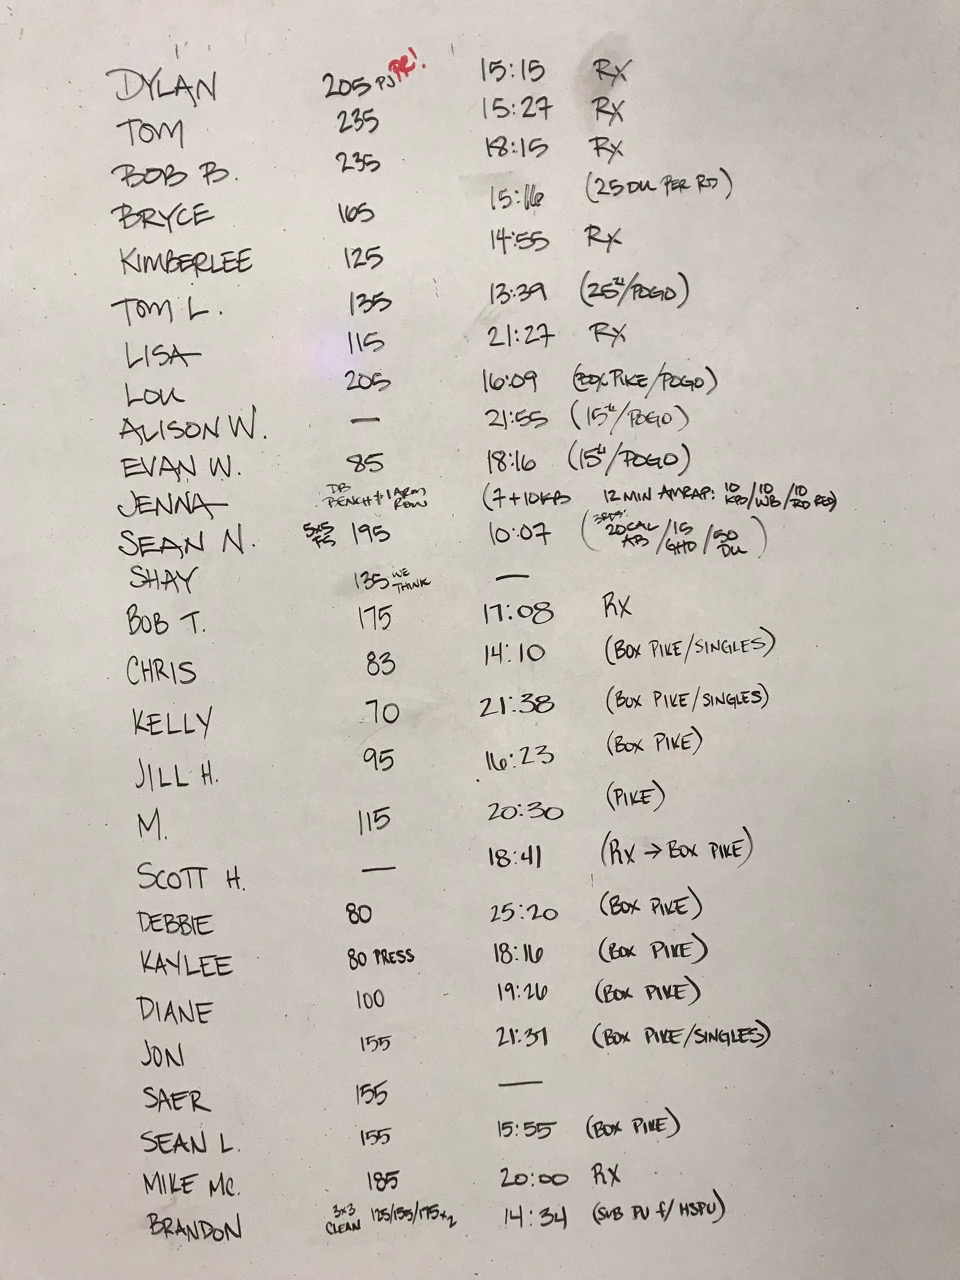 DYLAN 205 PJ PR! 15:15 RX
TOM 235 15:27 RX
BOB B. 235 18:15 RX
BRYCE 165 15:16 (25 DU PER RD)
KIMBERLEE 125 14:55 RX
TOM L. 135 13:39 (25#/POGO)
LISA 115 21:27 RX
LOU 205 16:09 (BOX PIKE/POGO)
ALISON W. — 21:55 (15#/POGO)
EVAN W. 85 18:16 (15#/POGO)
JENNA DB BENCH + 1 ARM ROW (7+10KB 12 MIN AMRAP: 10 KB/10 WB/10 RD)
SEAN N. 5x5 FS 195 10:07 (3RDS: 20 CAL AB/15 GHD/50 DU)
SHAY 135 WE THINK —
BOB T. 175 17:08 RX
CHRIS 83 14:10 (BOX PIKE/SINGLES)
KELLY 70 21:38 (BOX PIKE/SINGLES)
JILL H. 95 16:23 (BOX PIKE)
M. 115 20:30 (PIKE)
SCOTT H. — 18:41 (RX → BOX PIKE)
DEBBIE 80 25:20 (BOX PIKE)
KAYLEE 80 PRESS 18:16 (BOX PIKE)
DIANE 100 19:26 (BOX PIKE)
JON 155 21:37 (BOX PIKE/SINGLES)
SAER 155 —
SEAN L. 155 15:55 (BOX PIKE)
MIKE MC. 185 20:00 RX
BRANDON 3x3 CLEAN 125/155/175x2 14:34 (SUB PU f/HSPU)